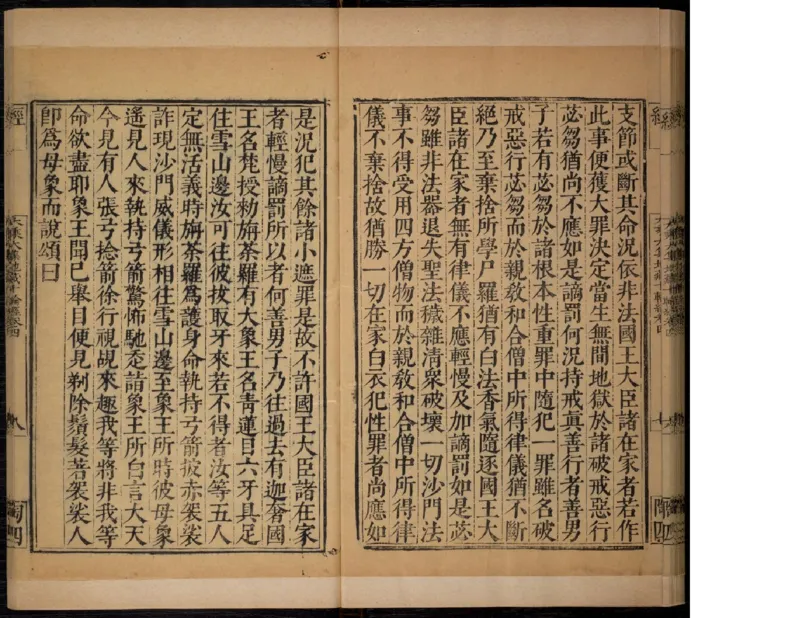 支節或斷其命況依非法國王大臣諸在家者若作
此事便獲大罪決定當生無間地獄於諸破戒惡行
苾芻猶尚不應如是謫罰何況持戒真善行者善男
子若有苾芻於諸根本性重罪中隨犯一罪雖名破
戒惡行苾芻而於親教和合僧中所得律儀猶不斷
絕乃至棄捨所學尸羅猶有白法香氣隨逐國王大
臣諸在家者無有律儀不應輕慢及加謫罰如是苾
芻雖非法器退失聖法穢雜清衆破壞一切沙門法
事不得受用四方僧物而於親教和合僧中所得律
儀不棄捨故猶勝一切在家白衣犯性罪者尚應如
是況犯其餘諸小遮罪是故不許國王大臣諸在家
者輕慢謫罰所以者何善男子乃往過去有迦奢國
王名梵授勑旃茶羅有大象王名青蓮目六牙具足
住雪山邊汝可往彼拔取牙來若不得者汝等五人
定無活義時旃茶羅爲護身命執持弓箭披赤袈裟
詐現沙門威儀形相往雪山邊至象王所時彼母象
遥見人來執持弓箭驚怖馳走詣象王所白言大天
今見有人張弓捻箭徐行視覘來趣我等將非我等
命欲盡耶象王聞已舉目便見剃除鬚髮著袈裟人
即爲母象而說頌曰
經
八
陶四
經
七
陶四